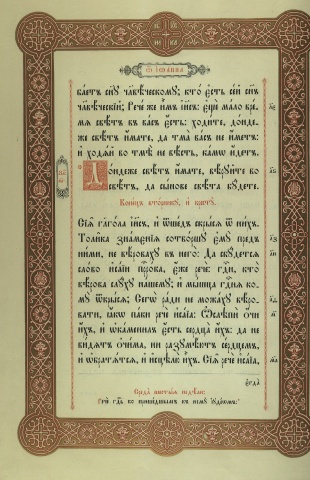 Ѿ іѡанна
баетъ сн҃у чл҃вѣческому; кто̀ є҆́сть се́й сн҃ъ
чл҃вѣческїй; Рече́ же и҆̀мъ і҆и҃съ: є҆щѐ ма́ло вре́-
мѧ свѣ́тъ въ ва́съ є҆́сть: ходи́те, до́нде-
же свѣ́тъ и҆́мате, да тма̀ ва́съ не и҆́метъ:
и҆ ходѧ́й во тмѣ̀ не вѣ́сть, ка́мѡ и҆́детъ.
До́ндеже свѣ́тъ и҆́мате, вѣ́рꙋйте во
свѣ́тъ, да сы́нове свѣ́та бꙋ́дете.
Коне́цъ вто́рникꙋ, и҆
Сїѧ̑ гл҃го́ла і҆и҃съ, и҆ ѿше́дъ скры́сѧ ѿ ни́хъ.
Толи̑ка зна́мєнїѧ сотво́ршꙋ є҆мꙋ̀ пред̾
ни́ми, не вѣ́ровахꙋ въ него̀: Да сбꙋ́детсѧ
сло́во и҆са́їи прⷪ҇ро́ка, є҆́же речѐ: гдⷭ҇и, кто̀
вѣ́рова слꙋ́хꙋ на́шемꙋ; и҆ мы́шца гдⷭ҇нѧ ко-
мꙋ̀ ѿкры́сѧ; Сегѡ̀ ра́ди не можа́хꙋ вѣ́ро-
вати, ꙗ҆́кѡ па́ки речѐ и҆са́їа: Ѡ҆слѣпѝ ѻ҆́чи
и҆́хъ, и҆ ѡ҆ка́менилъ є҆́сть сердца̀ и҆́хъ: да не
ви́дѧтъ ѻ҆чи́ма, ни разꙋмѣ́ютъ се́рдцемъ,
и҆ ѡ҆братѧ́тсѧ, и҆ и҆сцѣлю̀ и҆̀хъ. Сїѧ̑ речѐ и҆са́їа,
є҆гда̀